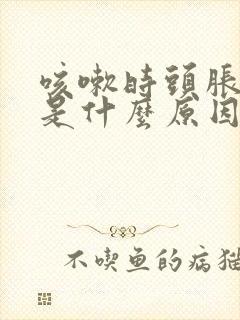 咳嗽時頭脹
是什麼原因
不喫魚的病猫